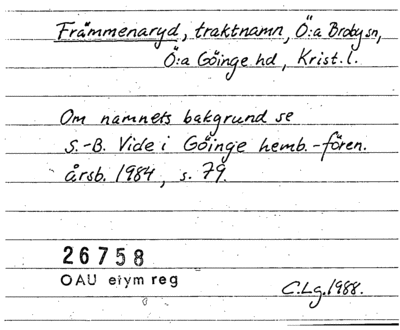 Främmenaryd, traktnamn, Ö:a Broby sn,
Ö:a Göinge hd, Krist. l.
Om namnets bakgrund se
S.-B. Vide i Göinge hemb.-fören.
årsb. 1984, s. 79.
26758
OAU etym reg
C.Lg. 1988.